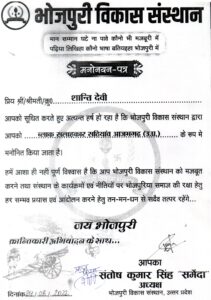 भोजपुरी विकास संस्थान
मान सम्मान घटे ना पावे कौनो भी मजबूरी में
पढ़िया लिखिहा कौनो भाषा बतियइहा भोजपुरी में
मनोनयन-पत्र
प्रिय श्री/श्रीमती/कु० शान्ति देवी
आपको सूचित करते हुए अत्यन्त हर्ष हो रहा है कि भोजपुरी विकास संस्थान द्वारा
आपको ब्लाक सलाहकार सठियांव आजमगढ़ (उ.प्र.) के रूप में
मनोनित किया जाता है।
हमें आशा ही नही पूर्ण विश्वास है कि आप भोजपुरी विकास संस्थान को मजबूत
करने तथा संस्थान के कार्यक्रमों एवं नीतियों पर भोजपुरिया समाज की रक्षा हेतु
हर सम्भव प्रयास एवं आन्दोलन करने हेतु तन-मन-धन से सदैव तत्पर रहेंगे।
जय भोजपुरी
क्रान्तिकारी अभिवादन के साथ...
आपका
संतोष कुमार सिंह "समेंदा
अध्यक्ष
भोजपुरी विकास संस्थान, उत्तर प्रदेश
दिनांक